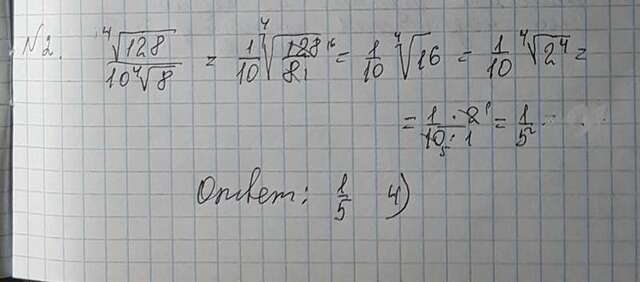 N2. ⁴√128 / 10⁴√8 = 1/10 ⁴√(128¹⁶/8₁) = 1/10 ⁴√16 = 1/10 ⁴√2⁴ =
= 1/10₅ · 2¹/1 = 1/5
Ответ: 1/5 4)